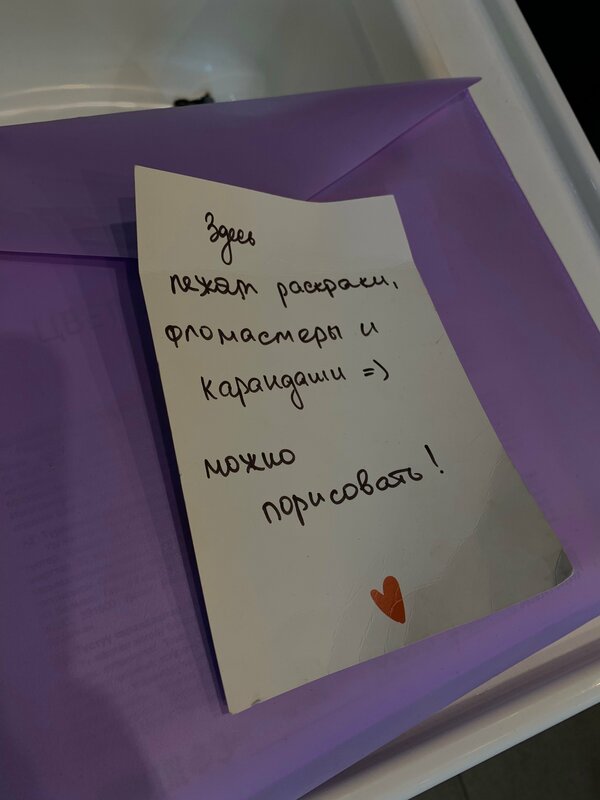 Здесь
лежат раскраки,
фломастеры и
карандаши =)
можно
порисовать!